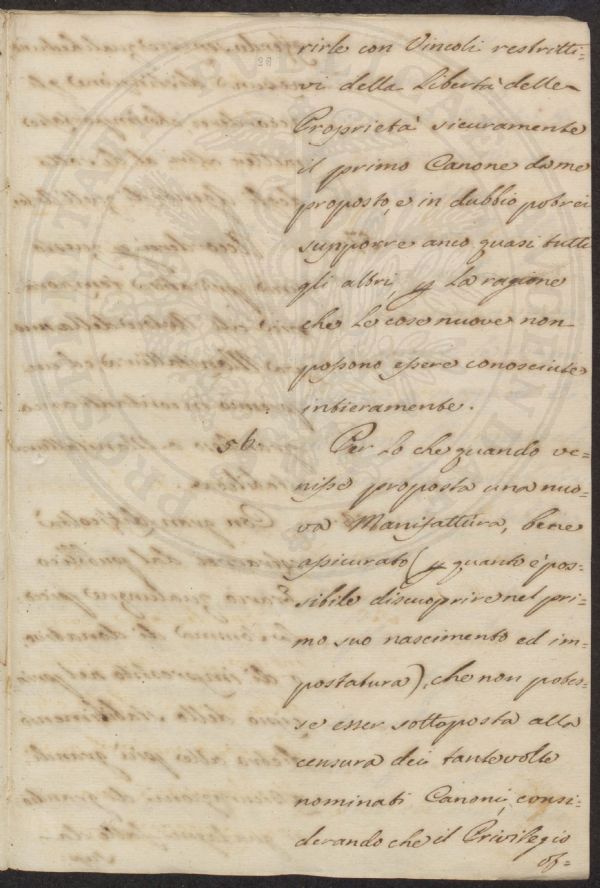 28
rirle con Vincoli restritti=
vi della Libertà delle
Proprietà sicuramente
il primo Canone da me
proposto, e in dubbio potrei
supporre anco quasi tutti
gli altri, p la ragione
che le cose nuove non
possono essere conosciute
intieramente.
56. Per lo che quando ve=
nisse proposta una nuo=
va Manifattura, bene
assicurato (p quanto è pos=
sibile discuoprire nel pri=
mo suo nascimento ed im=
postatura), che non potes=
se esser sottoposta alla
censura dei tante volte
nominati Canoni, consi=
derando che il Privilegio
of=